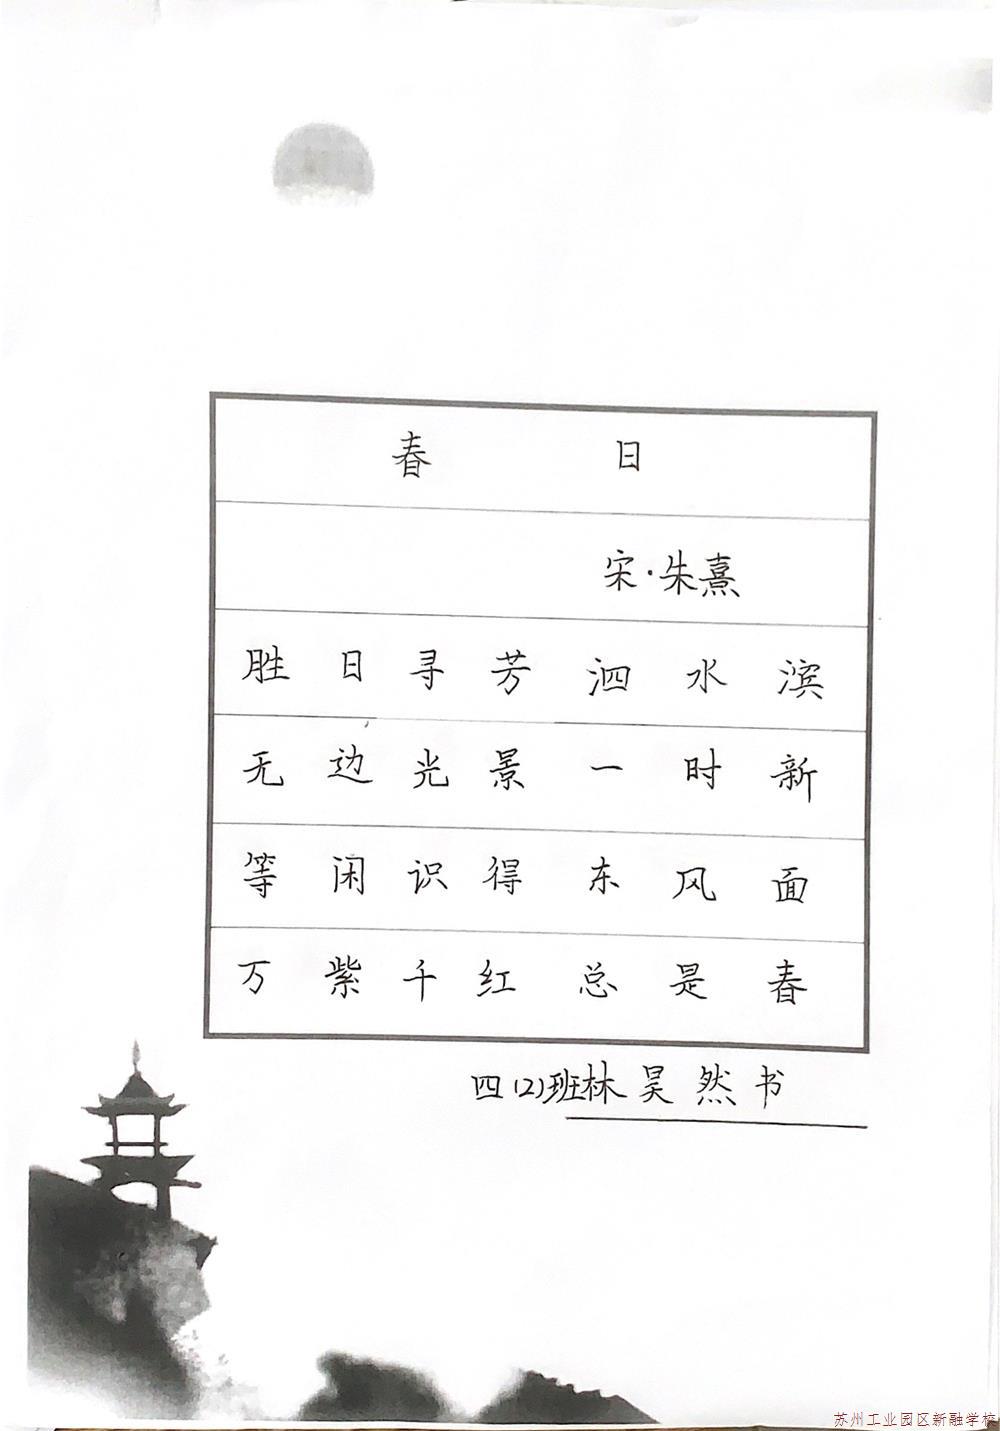 春日
宋·朱熹
胜日寻芳泗水滨
无边光景一时新
等闲识得东风面
万紫千红总是春
四(2)班林昊然书
苏州工业园区新融学校